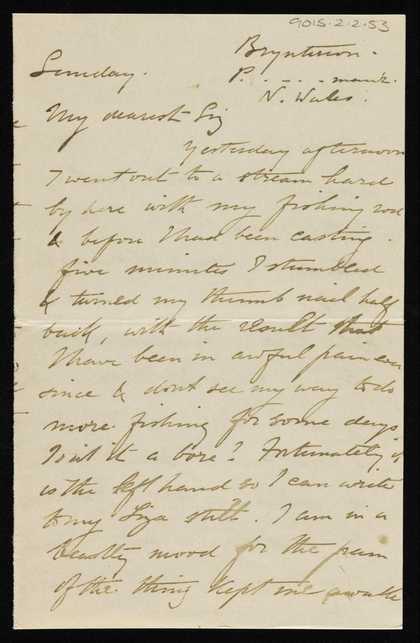 9015.2.2.53
Bryntirion.
Sunday. P. . . . . mawr.
N. Wales.
My dearest Liz
Yesterday afternoon
I went out to a stream hard
by here with my fishing rod
& before I had been casting
five minutes I stumbled
& turned my thumb nail half
back, with the result that
I have been in awful pain ever
since & dont see my way to do
more fishing for some days
Isnt it a bore? Fortunately it
is the left hand so I can write
to my Liza still. I am in a
beastly mood for the pain
of the thing kept me awake